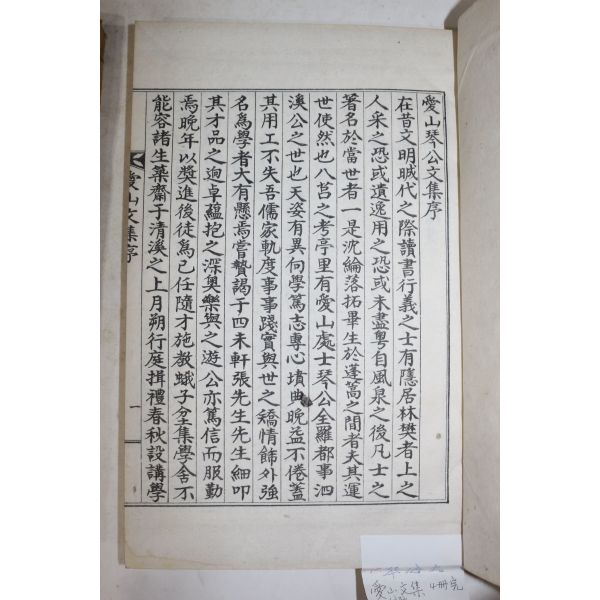 愛山琴公文集序
在昔文明晠代之際讀書行義之士有隱居林樊者上之
人采之恐或遺逸用之恐或未盡粤自風泉之後凡士之
著名於當世者一是沈綸落拓畢生於蓬蒿之間者夫其運
世使然也八莒之考亭里有愛山處士琴公全羅都事泗
溪公之世也天姿有異向學篤志專心墳典晩益不倦蓋
其用工不失吾儒家軌度事事踐實與世之矯情飾外強
名爲學者大有懸焉嘗贄謁于四未軒張先生先生細叩
其才品之逈卓蘊抱之深奧樂與之遊公亦篤信而服勤
焉晩年以奬進後徒爲己任隨才施敎蛾子坌集學舍不
能容諸生築齋于淸溪之上月朔行庭揖禮春秋設講學
愛山文集序
一
愛山文集 4冊完